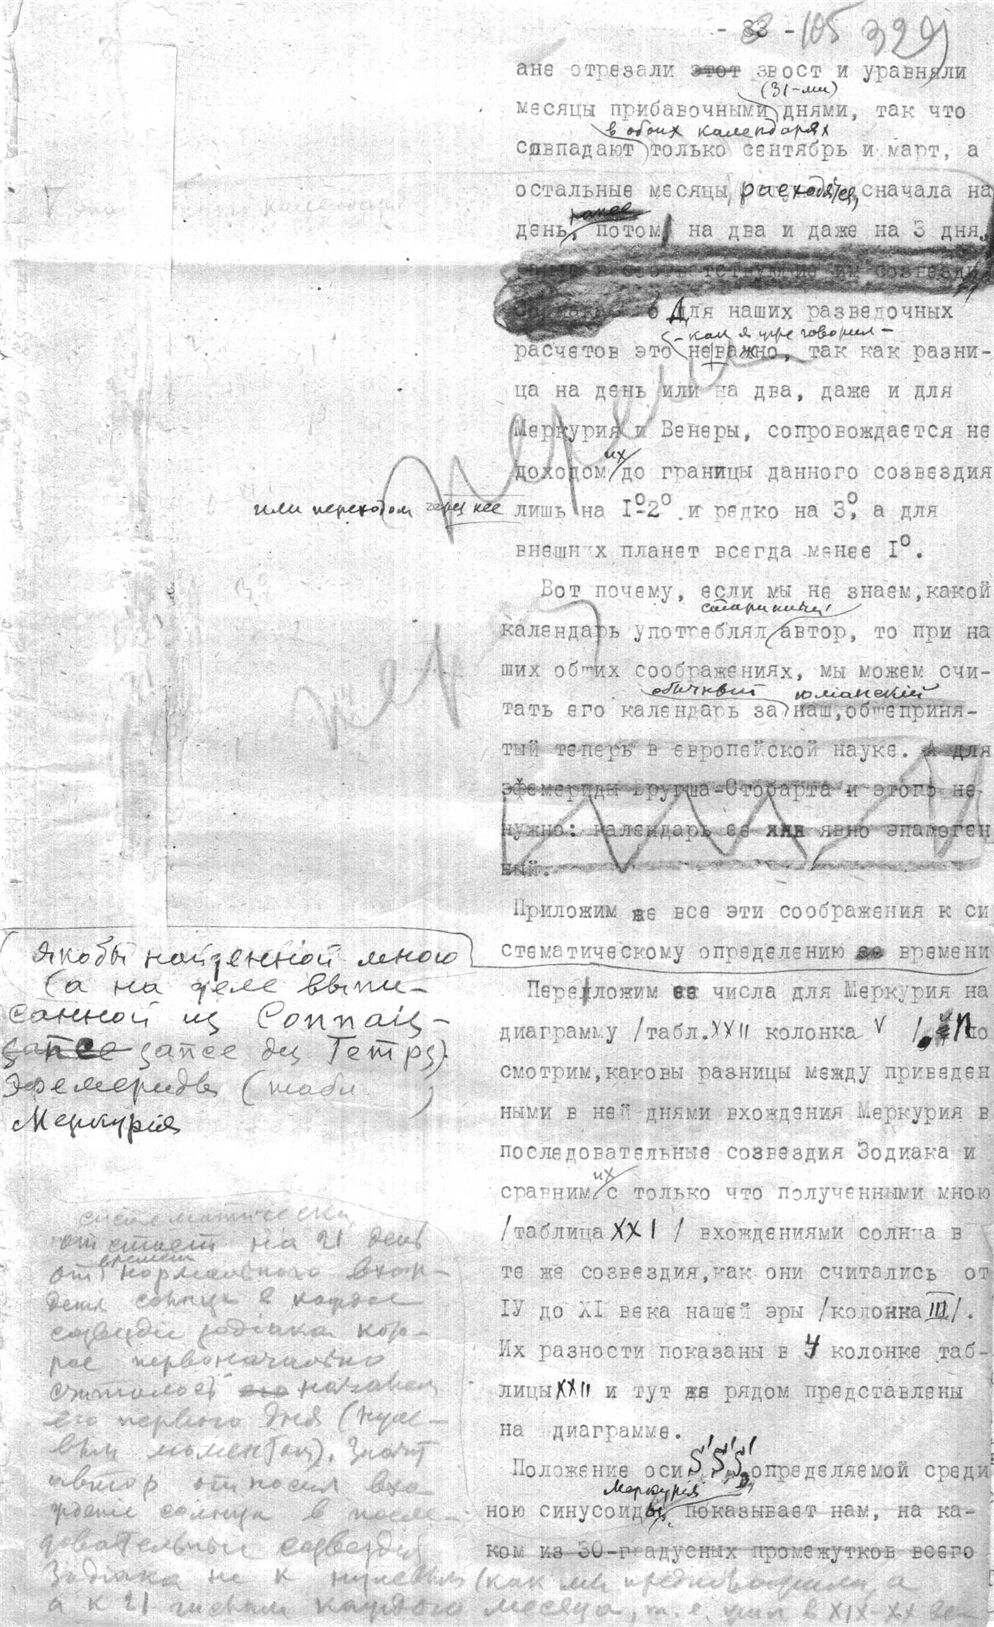 - 33 - 105 329)
ане отрезали этот звост и уравняли
(31-ми)
месяцы прибавочными днями, так что
в обоих календарях
совпадают только сентябрь и март, а
остальные месяцы расходятся, сначала на
ранее
день, потом на два и даже на 3 дня.
Для наших разведочных
- как я уже говорил -
расчетов это неважно, так как разни-
ца на день или на два, даже и для
Меркурия и Венеры, сопровождается не
их
доходом до границы данного созвездия
или переходом через нее
лишь на I°-2° и редко на 3°, а для
внешних планет всегда менее I°.
Вот почему, если мы не знаем, какой
старинный
календарь употреблял автор, то при на
ших общих соображениях, мы можем счи-
обычный юлианский
тать его календарь за наш, общеприня-
тый теперь в европейской науке. А для
эфемериды Бругша-Стобарта и этого не
нужно: календарь ее явно эпагоген
ный.
Приложим же все эти соображения к си
стематическому определению ее времени
якобы найденной мною
(а на деле выпи-
санной из Connais-
sance des Temps)
Эфемериды (табл )
Меркурія
Переложим ее числа для Меркурия на
диаграмму /табл. XXII колонка V /, и по
смотрим, каковы разницы между приведен
ными в ней днями вхождения Меркурия в
последовательные созвездия Зодиака и
их
сравним с только что полученными мною
/таблица XXI / вхождениями солнца в
те же созвездия, как они считались от
IУ до XI века нашей эры /колонка III/.
Их разности показаны в 4 колонке таб-
лицы XXII и тут же рядом представлены
на диаграмме.
Положение оси S' S' S' определяемой среди
Меркурія
ною синусоиды, показывает нам, на ка-
ком из 30-градусных промежутков всего
систематически
отстает на 21 день
времени
от нормального вхож-
дения солнца в каждое
созвездие зодіака, кото-
рое первоначально
считалось его началом
его первого дня (нуле-
вым моментом). Значит
автор относил вхо
ждение солнца в после-
довательные созвездия
Зодіака не к нулевым (как мы
а к 21 числам каждого месяца, т. е. как в XIX-XX век